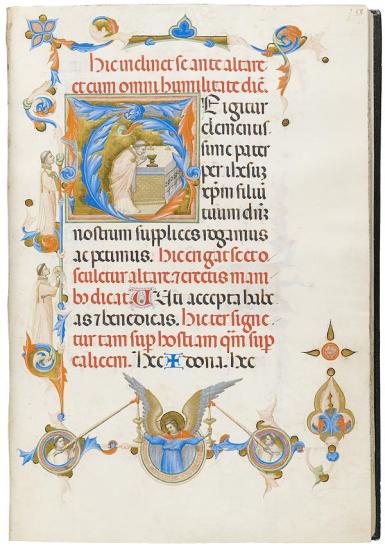 Hic inclinet se ante altare
et cum omni humilitate dicit.
TE igitur
clementis
sime pater
per ihesum
xpm filiu
tuum dnm
nostrum supplices rogamus
ac petimus. Hic erigat se et o
sculetur altare. et erectis mani
bo dicat Uti accepta habe
as et benedicas. Hic ter signe
tur tam sup hostiam qm sup
calicem. Hec ✠ dona. hec